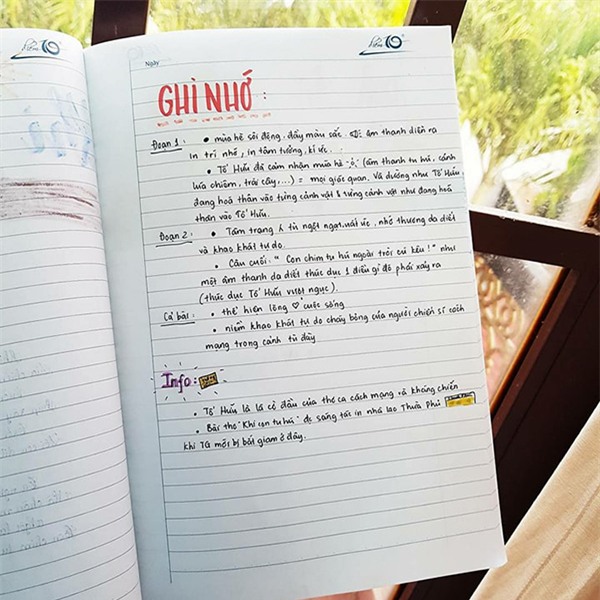 Ngày
GHI NHỚ :
Đoạn 1 : • mùa hè sôi động, đầy màu sắc, âm thanh diễn ra
in trí nhớ, in tâm tưởng, kí ức.
• Tố Hữu đã cảm nhận mùa hè (âm thanh tu hú, cánh
lúa chiêm, trái cây,...) = mọi giác quan. Và dường như Tố Hữu
đang hoá thân vào từng cảnh vật & từng cảnh vật như đang hoá
thân vào Tố Hữu.
Đoạn 2 : • Tâm trạng tù ngột ngạt, uất ức, nhớ thương da diết
và khao khát tự do.
• Câu cuối: "Con chim tu hú ngoài trời cứ kêu!" như
một âm thanh da diết thúc dục 1 điều gì đó phải xảy ra
(thúc dục Tố Hữu vượt ngục).
Cả bài: • thể hiện lòng ♡ cuộc sống
• niềm khao khát tự do cháy bỏng của người chiến sĩ cách
mạng trong cảnh tù đày
Info :
• Tố Hữu là lá cờ đầu của thơ ca cách mạng và kháng chiến
• Bài thơ "Khi con tu hú" đc sáng tác in nhà lao Thừa Phủ
khi TG mới bị bắt giam ở đây.